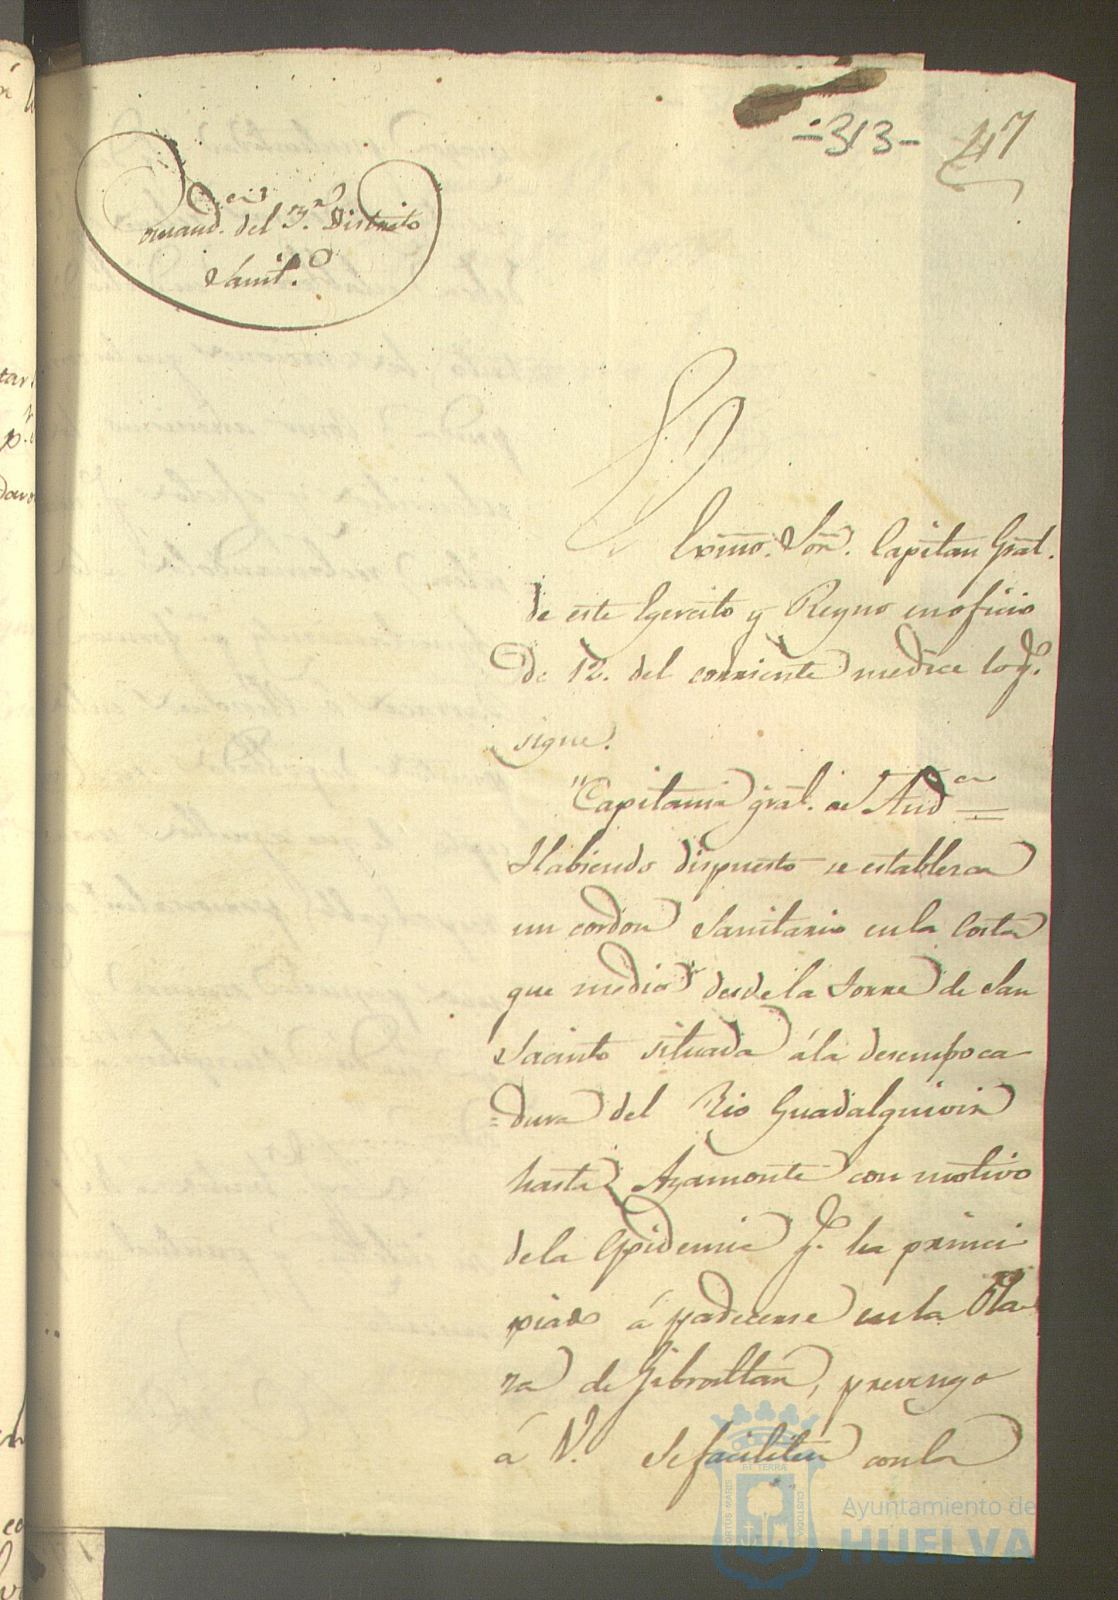 -313- 47
Comand.cia del 3.r Distrito
Sanit.o
El
Exmo. Sōr. Capitan Gral.
de este Egercito y Reyno en oficio
De 12. del corriente me dice lo q.e
sigue.
"Capitania gral. de And.ca
Habiendo dispuesto se establesca
un cordon Sanitario en la Costa
que media desde la Torre de San
Jacinto situada á la desemboca
=dura del Rio Guadalquivir
hasta Ayamonte con motivo
de la Epidemia q.e ha princi
piado á padecerse en la Pla
za de Gibraltar, prevengo
á V. se faciliten con la
PORTUS MARIS ET TERRA CUSTODIA
Ayuntamiento de
HUELVA